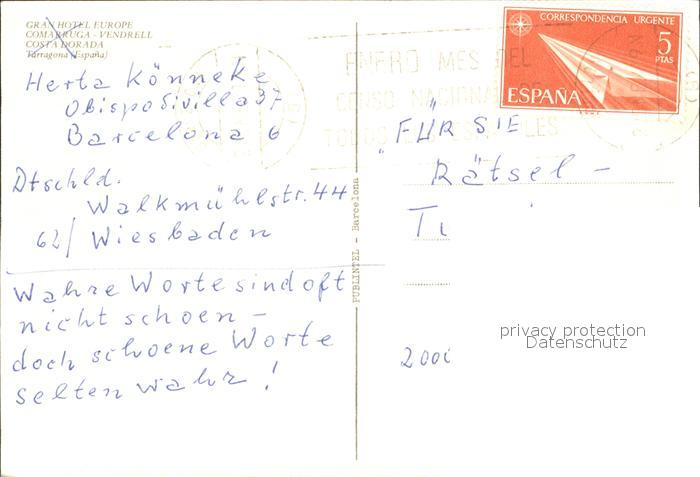 GRAN HOTEL EUROPE
COMARRUGA - VENDRELL
COSTA DORADA
Tarragona (España)
Herta Könneke
Obispo Sivilla 37
Barcelona 6
Dtschld.
Walkmühlstr. 44
62/ Wiesbaden
Wahre Worte sind oft
nicht schoen -
doch schoene Worte
selten wahr!
PUBLINTEL - Barcelona
CORRESPONDENCIA URGENTE
5
PTAS
ESPAÑA
ENERO MES DEL
CENSO NACIONAL DE
TODOS ESPAÑOLES
"FÜR SIE
Rätsel -
200
privacy protection
Datenschutz